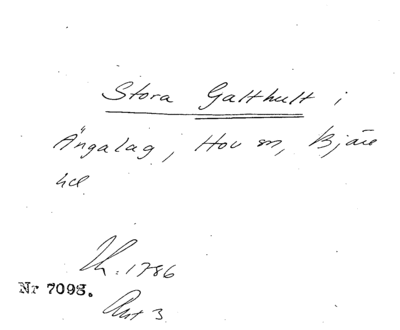 Stora Galthult i
Ängalag, Hov sn, Bjäre
hd
Uk. 1786
Nr 7093.
Akt 3